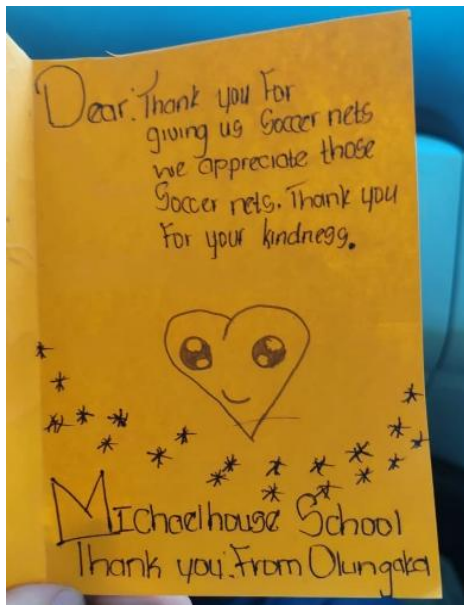 Dear: Thank you For
giving us Soccer nets
we appreciate those
Soccer nets. Thank you
For your kindness.
Michaelhouse School
Thank you: From Olungaka